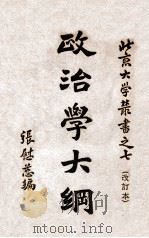 北京大學叢書之七（改訂本）
政治學大綱
張慰慈編
www.toutuo.com